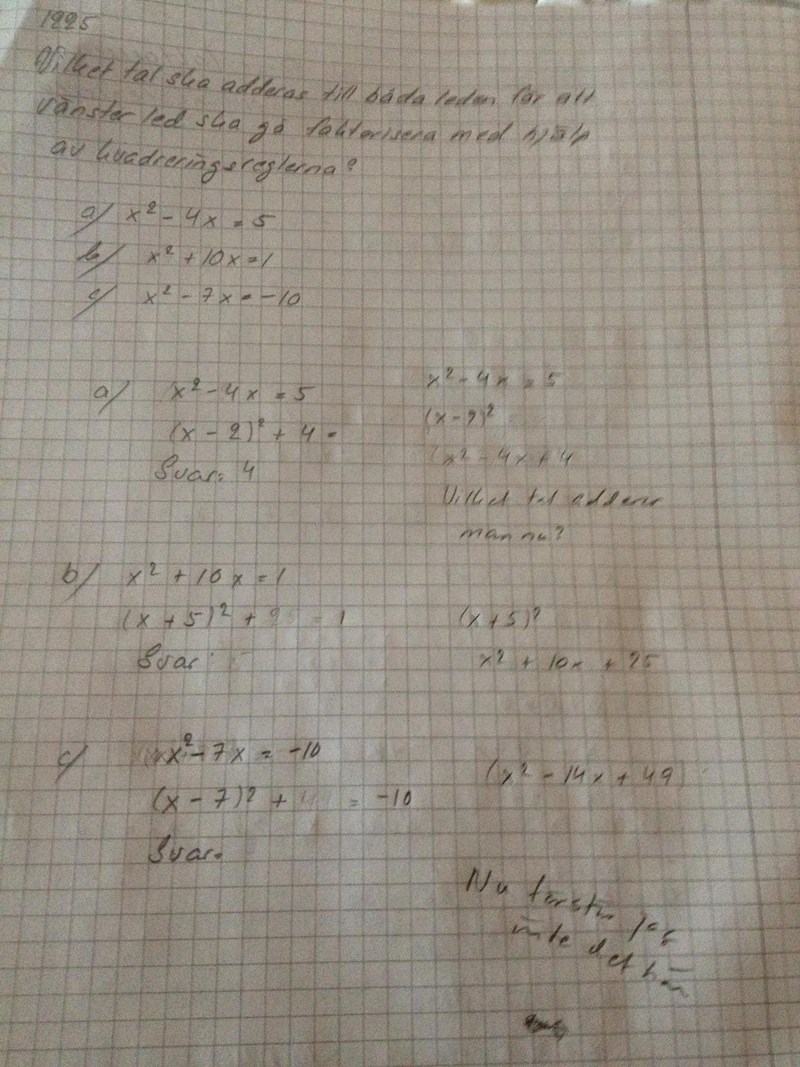 1225
Vilket tal ska adderas till båda leden för att
vänster led ska gå faktorisera med hjälp
av kvadreringsreglerna?
a) x² - 4x = 5
b) x² + 10x = 1
c) x² - 7x = -10
a) x² - 4x = 5
(x - 2)² + 4 =
Svar: 4
x² - 4x = 5
(x - 2)²
(x² - 4x + 4
Vilket tal adderar
man nu?
b) x² + 10x = 1
(x + 5)² + = 1
Svar:
(x + 5)²
x² + 10x + 25
c) x² - 7x = -10
(x - 7)² + = -10
Svar:
(x² - 14x + 49)
Nu förstår jag
inte det här